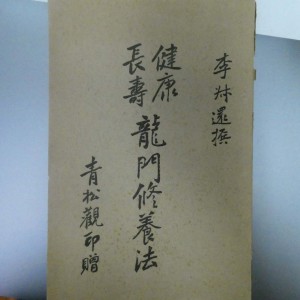 李叔還撰
健康
長壽
龍門修養法
青松觀印贈